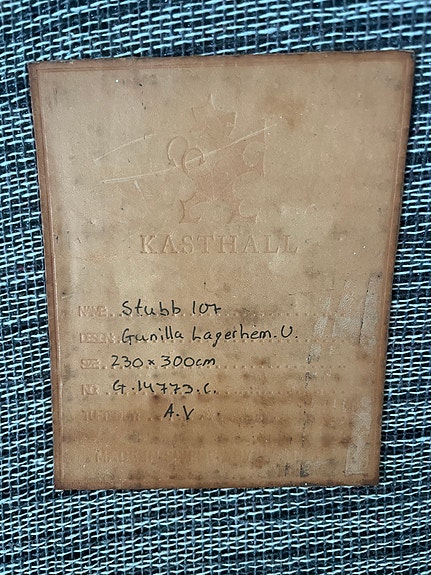 KASTHALL
NAME: Stubb 107
DESIGN: Gunilla Lagerhem. U.
SIZE: 230 x 300cm
NO: G.14773.C.
A.V